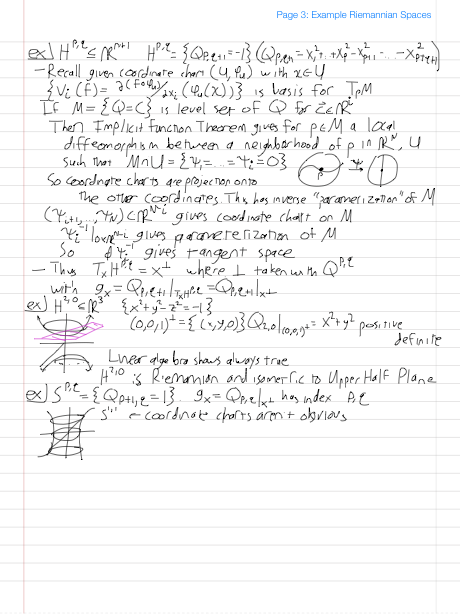 Page 3: Example Riemannian Spaces
ex) H^{p,q} ⊆ R^{n+1} H^{p,q} = {Q_{p,q+1} = -1} (Q_{p,q+1} = x_1^2 + .. + x_p^2 - x_{p+1}^2 - ... - x_{p+q+1}^2)
- Recall given coordinate chart (U, φ_u) with x ∈ U
{V_i(f) = ∂(f∘φ_u^{-1})/∂x_i (φ_u(x))} is basis for T_pM
If M = {Q = C} is level set of Q for Z ∈ R^i
Then Implicit function Theorem gives for p ∈ M a local
diffeomorphism between a neighborhood of p in R^N, U
such that M∩U = {ψ_1 = ... = ψ_i = 0}
So coordinate charts are projection onto
the other coordinates. This has inverse "parametrization" of M
(ψ_{i+1}, ..., ψ_N) ⊂ R^{N-i} gives coordinate chart on M
ψ_i^{-1}|_{0×R^{N-i}} gives parameterization of M
So ∂ψ_i^{-1} gives tangent space
- Thus T_xH^{p,q} = x^⊥ where ⊥ taken with Q^{p,q}
with g_x = Q_{p,q+1}|_{T_xH^{p,q}} = Q_{p,q+1}|_{x^⊥}
ex) H^{2,0} ⊆ R^3 {x^2 + y^2 - z^2 = -1}
(0,0,1)^⊥ = {(x,y,0)} Q_{2,0}|_{(0,0,1)^⊥} = x^2 + y^2 positive
definite
Linear algebra shows always true
H^{2,0} is Riemannian and isometric to Upper Half Plane
ex) S^{p,q} = {Q_{p+1,q} = 1}. g_x = Q_{p,q}|_{x^⊥} has index p,q
S^{1,1} ← coordinate charts aren't obvious